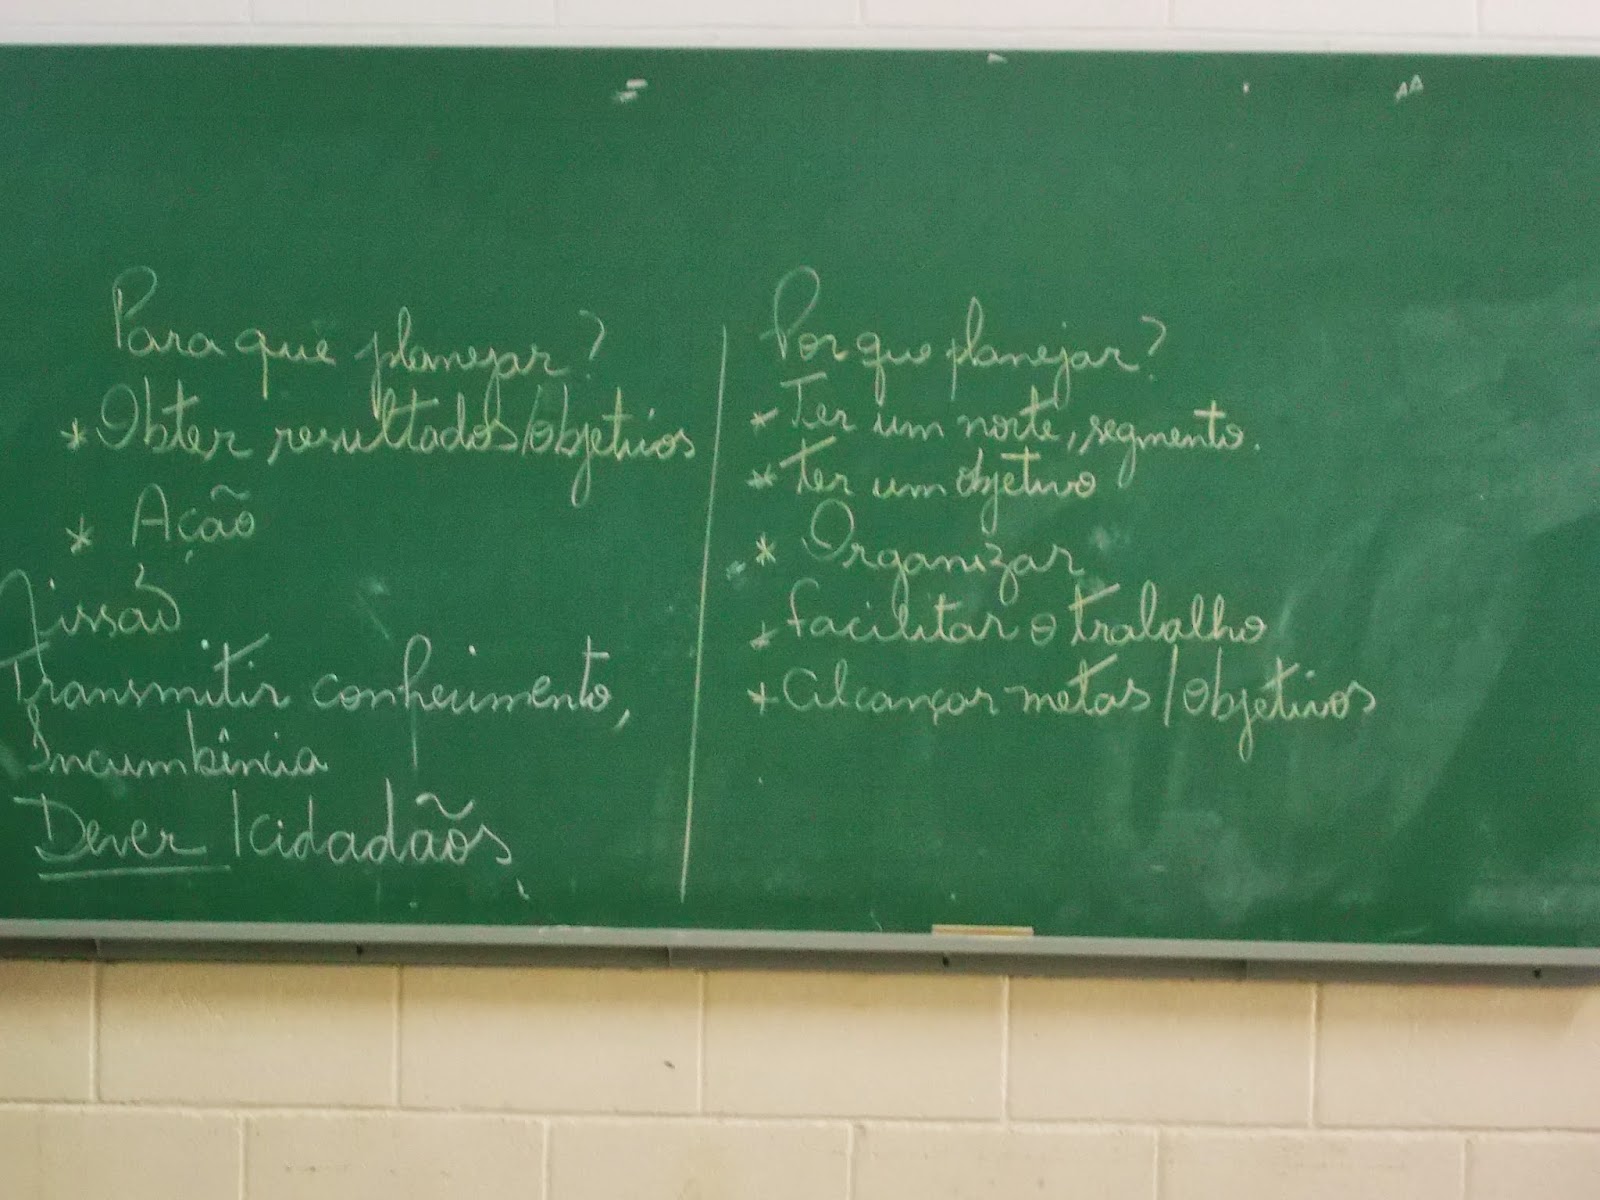 Para que planejar?
* Obter resultados/objetivos
* Ação
Missão
Transmitir conhecimento,
Incumbência
Dever /cidadãos
Por que planejar?
* Ter um norte, segmento.
* ter um objetivo
* Organizar
* facilitar o trabalho
* Alcançar metas/objetivos